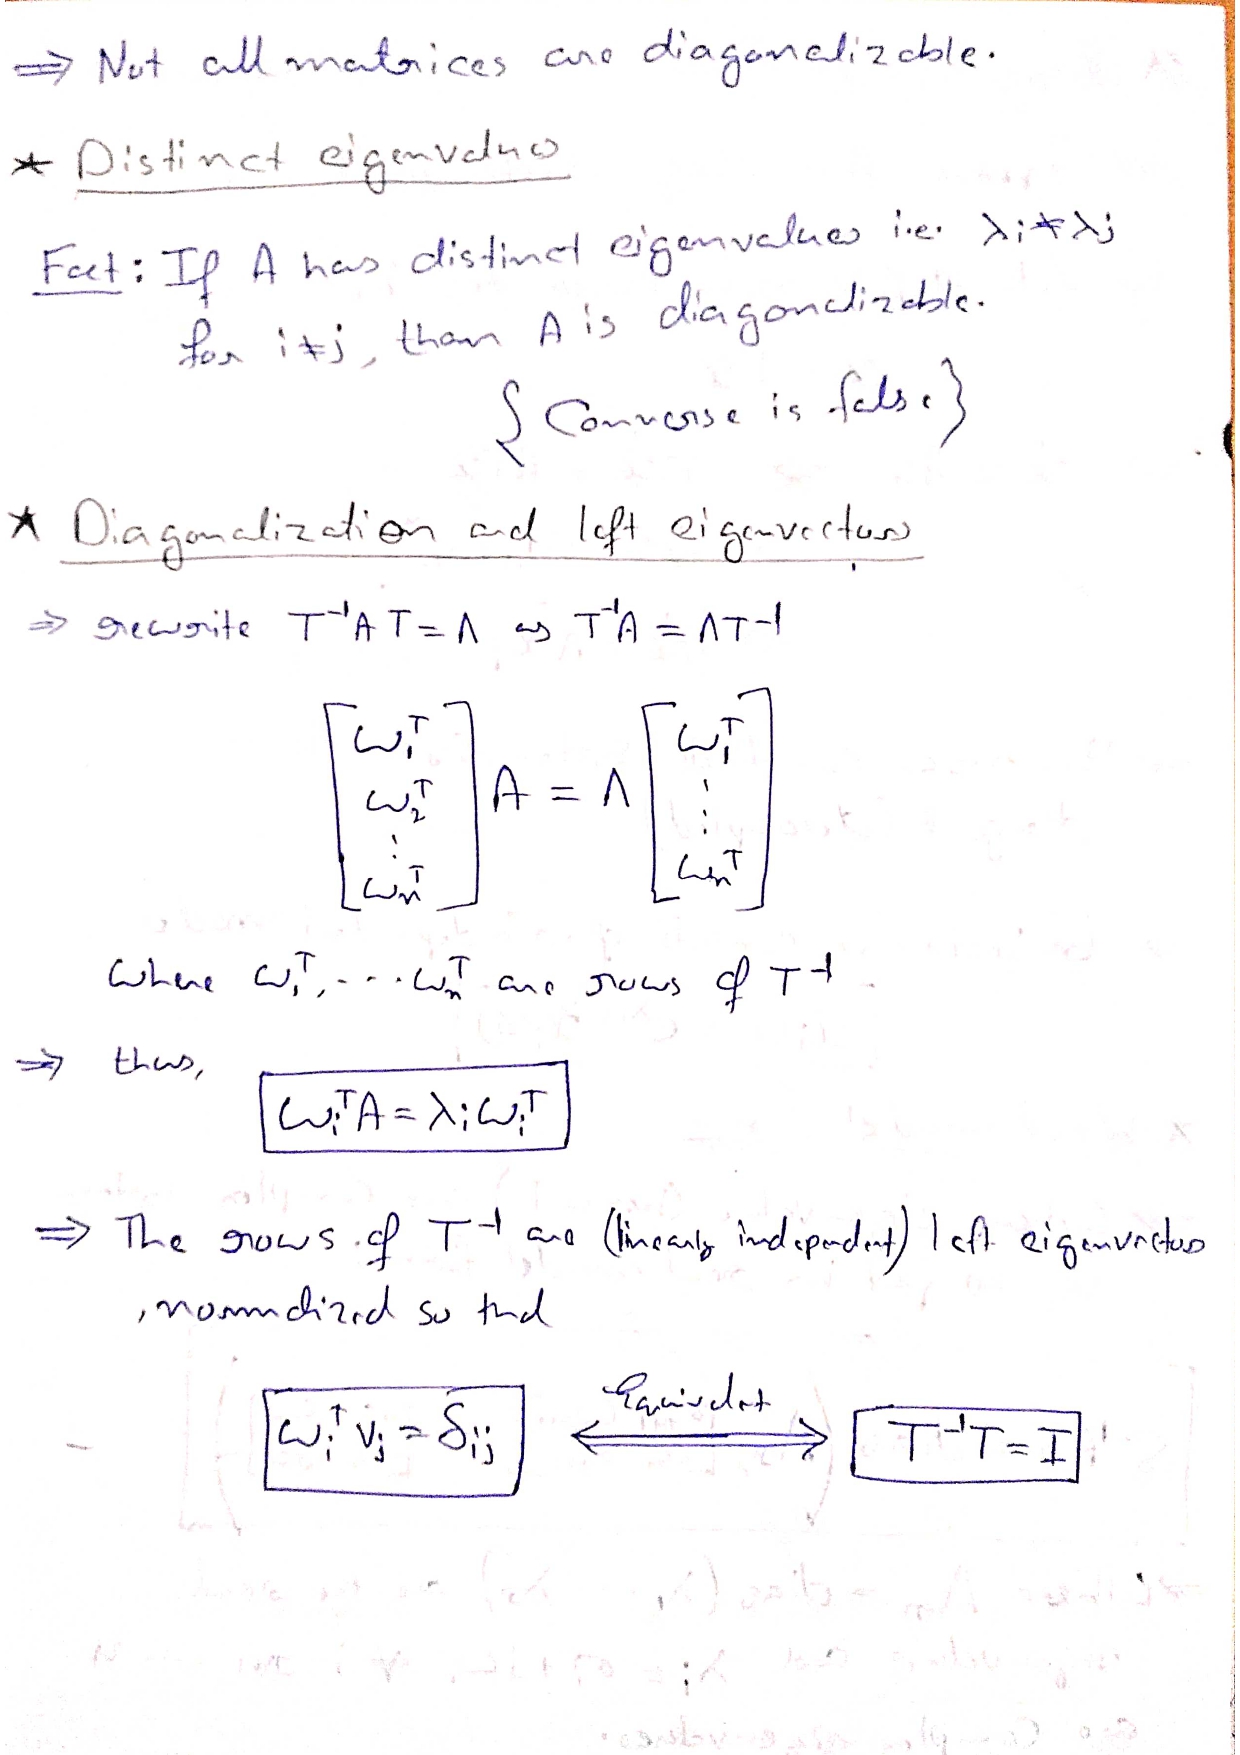 ⇒ Not all matrices are diagonalizable.
* Distinct eigenvalues
Fact: If A has distinct eigenvalues i.e. λi≠λj
for i≠j, then A is diagonalizable.
{Converse is false}
* Diagonalization and left eigenvectors
⇒ rewrite T⁻¹AT=Λ as T⁻¹A = ΛT⁻¹
[ω₁ᵀ ω₂ᵀ ⋮ ωnᵀ] A = Λ [ω₁ᵀ ⋮ ωnᵀ]
where ω₁ᵀ, ... ωnᵀ are rows of T⁻¹
⇒ thus,
ωiᵀA = λiωiᵀ
⇒ The rows of T⁻¹ are (linearly independent) left eigenvectors
, normalized so that
ωiᵀvj = δij ⟺ Equivalent T⁻¹T = I